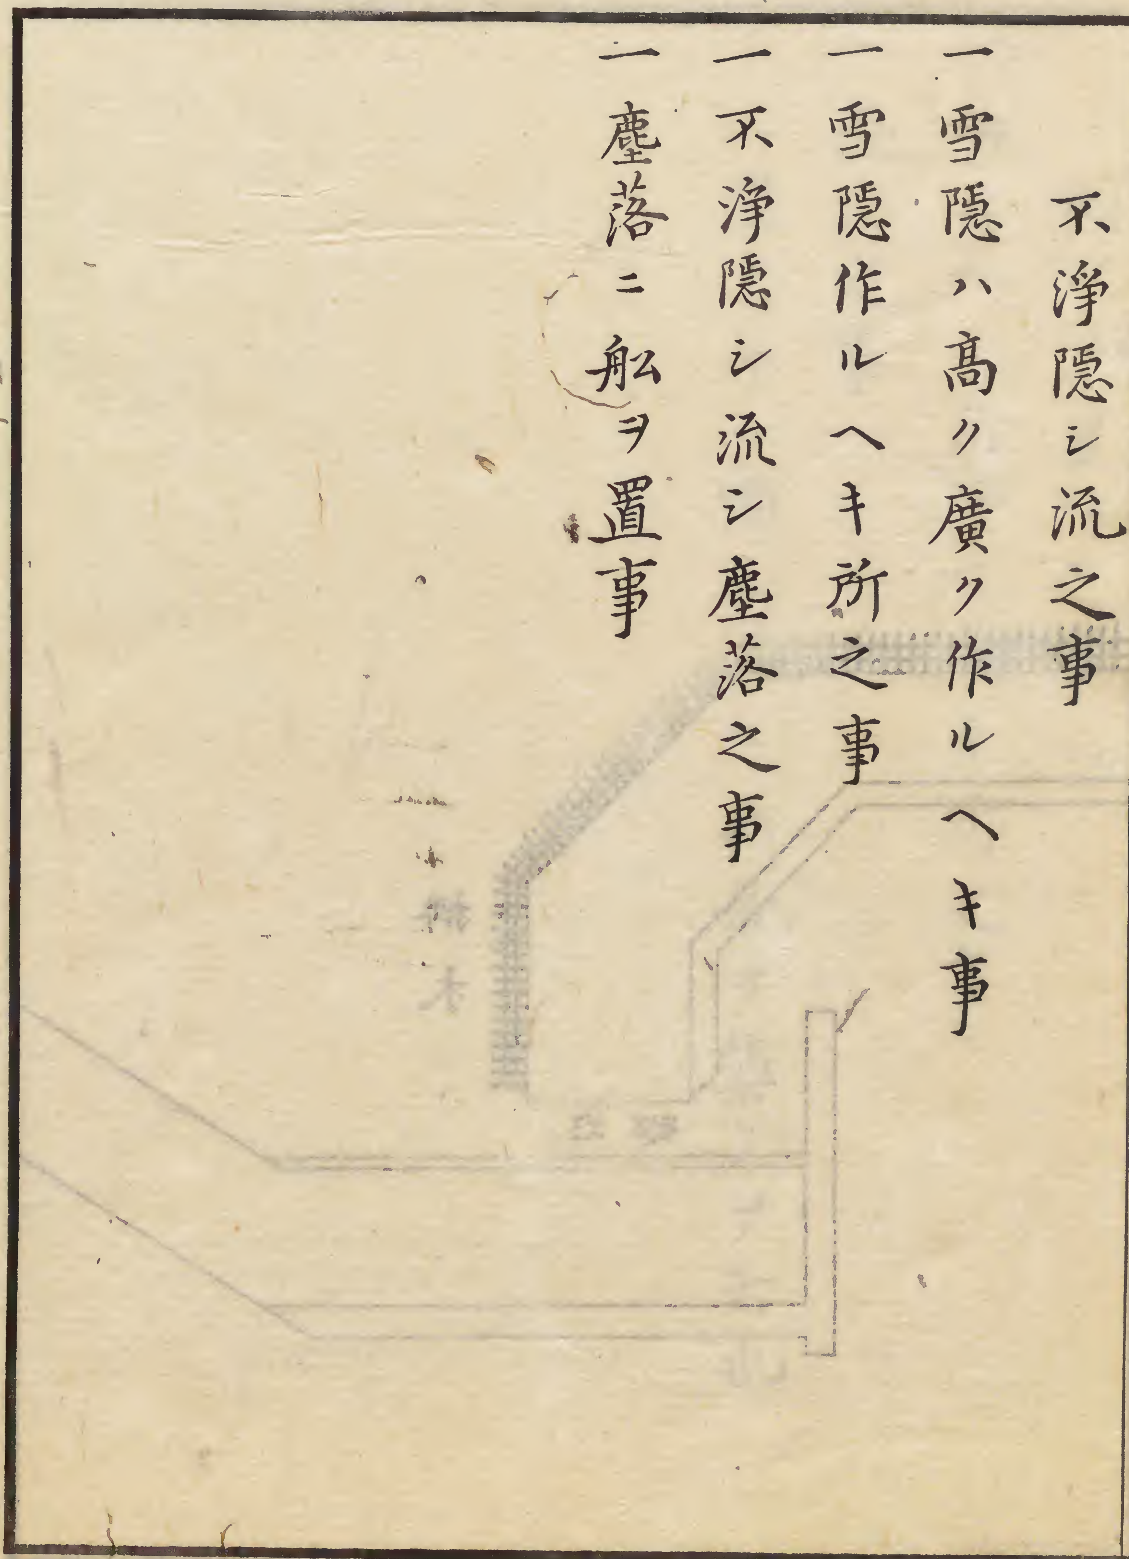 不浄隠シ流之事
一雪隠ハ髙ク廣ク作ルヘキ事
一雪隠作ルヘキ所之事
一不浄隠シ流シ塵落之事
一塵落ニ舩ヲ置事